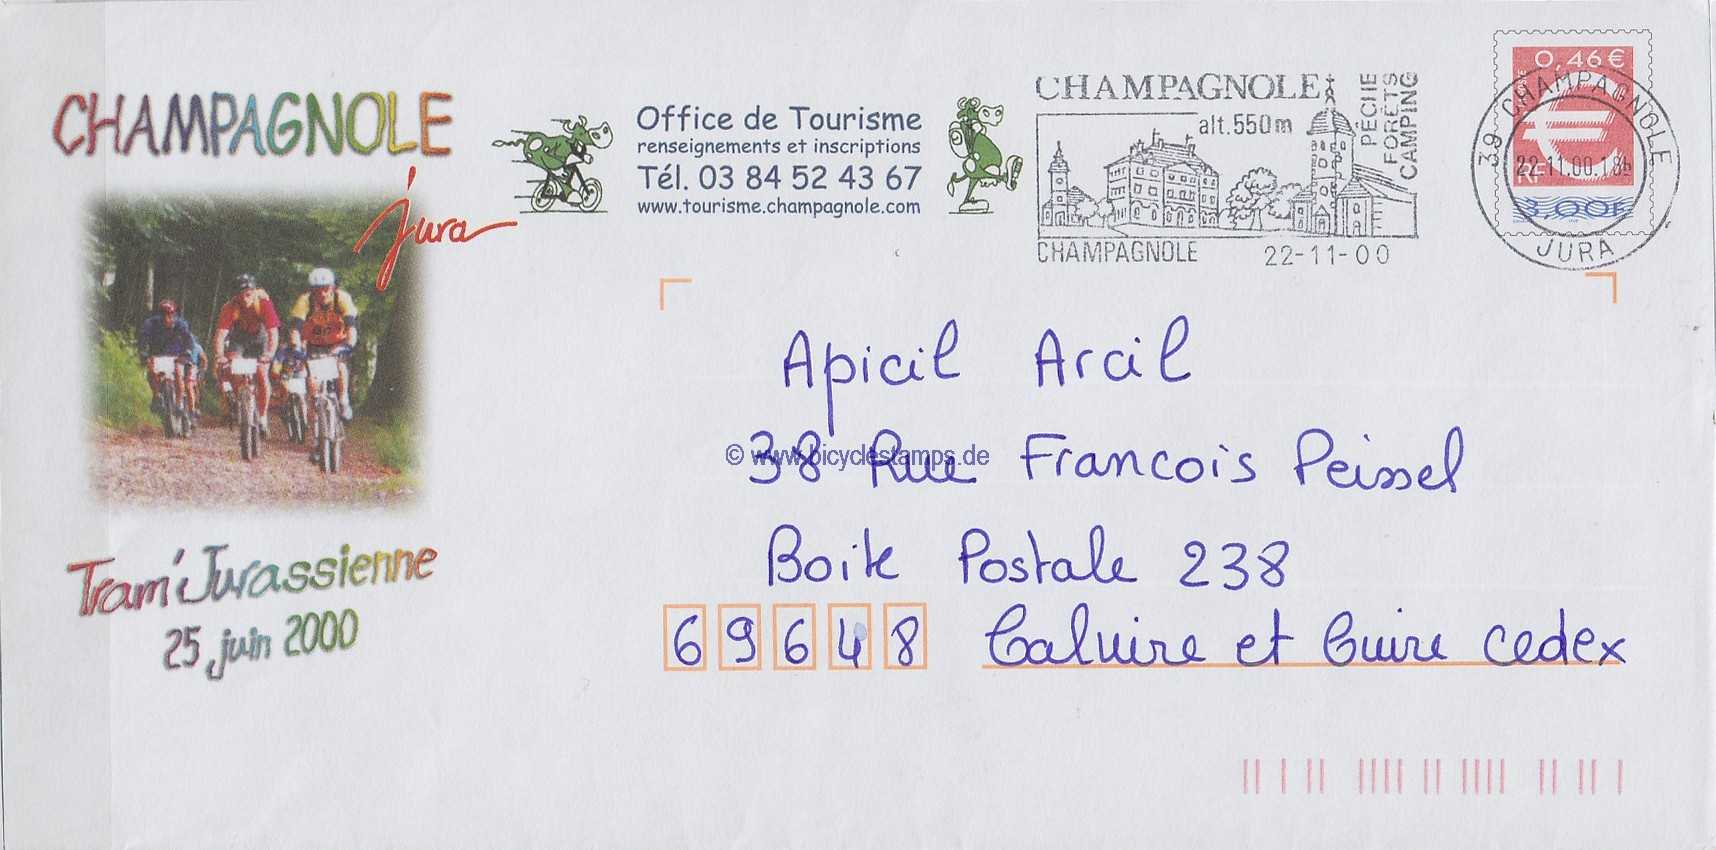 CHAMPAGNOLE
jura
Tram'Jurassienne
25 juin 2000
Office de Tourisme
renseignements et inscriptions
Tél. 03 84 52 43 67
www.tourisme.champagnole.com
CHAMPAGNOLE
alt.550m
PÊCHE
FORÊTS
CAMPING
CHAMPAGNOLE 22-11-00
0,46 €
RF
3,00F
39 CHAMPAGNOLE
22-11.00.18h
JURA
Apicil Arcil
38 Rue Francois Peissel
© www.bicyclestamps.de
Boite Postale 238
69648 Caluire et Cuire cedex